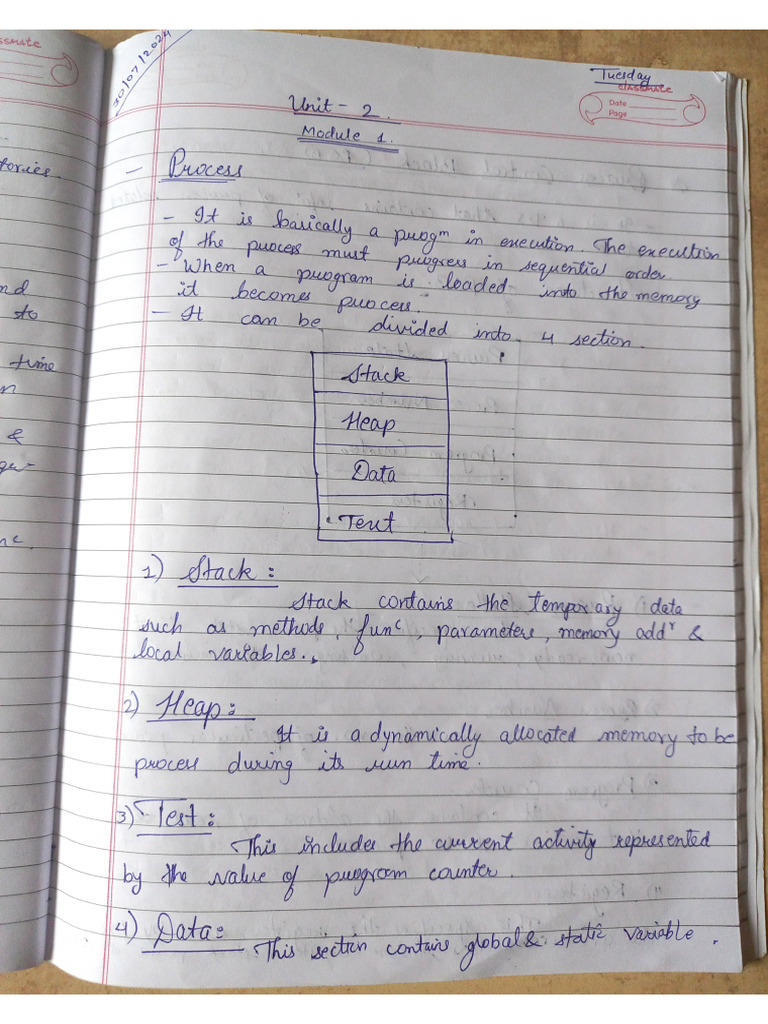 assmate
30/07/2024
Tuesday
classmate
Date
Page
Unit - 2.
Module 1.
- Process
- It is basically a progm in execution. The execution
of the process must progress in sequential order
- When a program is loaded into the memory
it becomes process.
- It can be divided into 4 section.
Stack
Heap
Data
Text
1) Stack :
Stack contains the temporary data
such as methods, func, parameters, memory addr &
local variables.
2) Heap :
It is a dynamically allocated memory to be
process during its run time.
3) Test :
This includes the current activity represented
by the value of program counter.
4) Data :
This section contains global & static variable.
tories.
nd
to
time
n
&
nc.